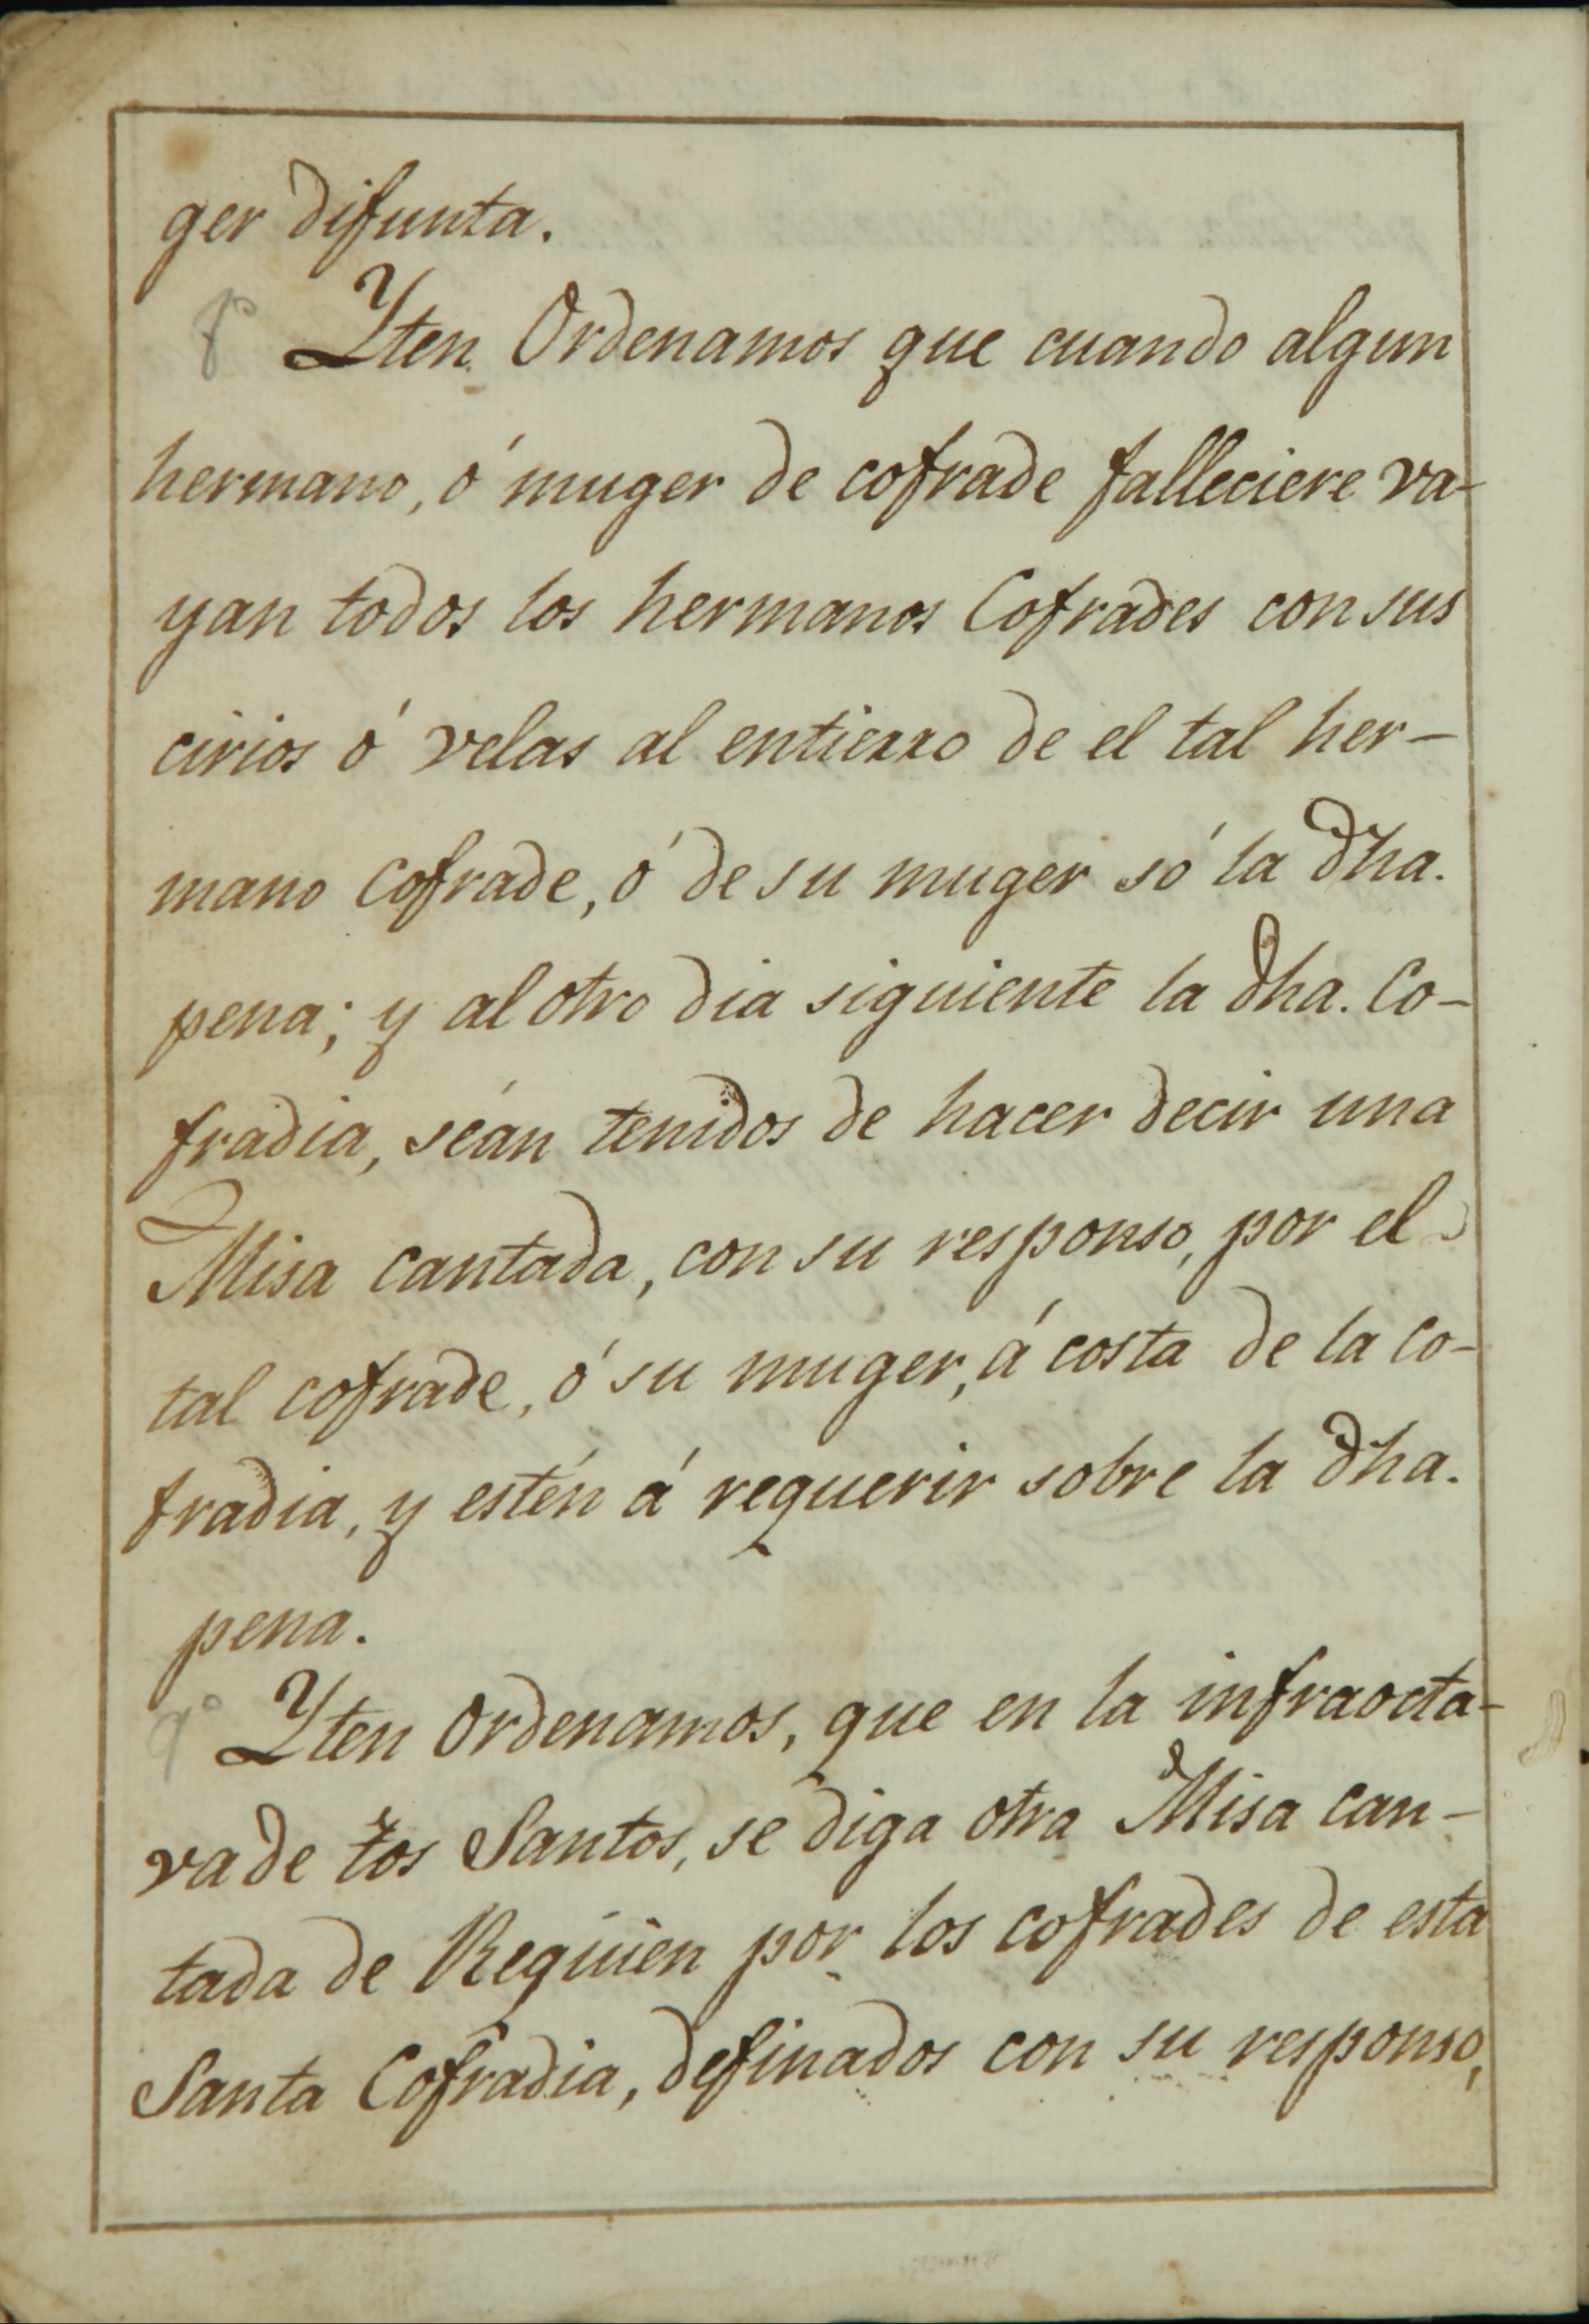 ger difunta.
8º Yten Ordenamos que cuando algun
hermano, ó muger de cofrade falleciere va-
yan todos los hermanos Cofrades con sus
cirios ó velas al entierro de el tal her-
mano cofrade, ó de su muger só la dha.
pena; y al otro dia siguiente la dha. Co-
fradia, séan tenidos de hacer decir una
Misa cantada, con su responso, por el
tal cofrade, ó su muger, á costa de la co-
fradia, y estén á requerir sobre la dha.
pena.
9º Yten ordenamos, que en la infraocta-
va de tos Santos, se diga otra Misa can-
tada de Requien por los cofrades de esta
Santa Cofradia, definados con su responso,